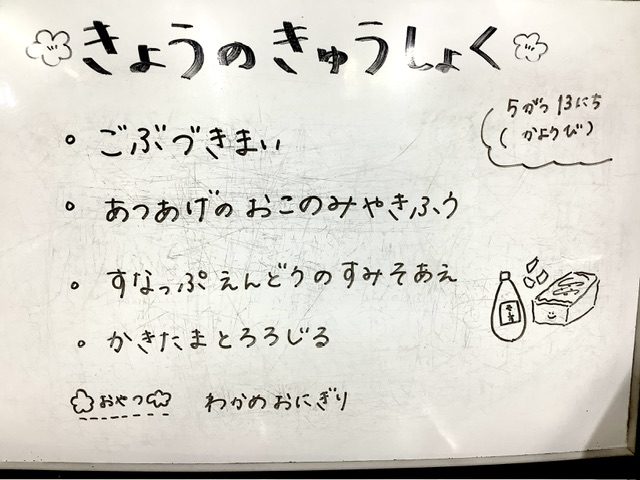 きょうのきゅうしょく
5がつ13にち
(かようび)
・ごぶづきまい
・あつあげのおこのみやきふう
・すなっぷえんどうのすみそあえ
・かきたまとろろじる
おやつ わかめおにぎり